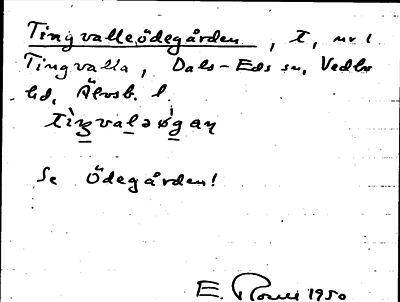 Tingvalleödegården, t, nr 1
Tingvalla, Dals-Eds sn, Vedbo
hd, Älvsb. l.
tìŋvaləø̀gaɳ
Se Ödegården!
E. 1950